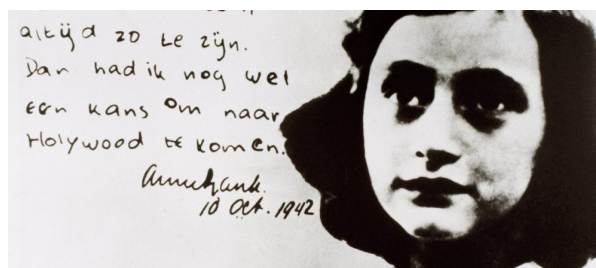 altijd zo te zijn.
Dan had ik nog wel
een kans om naar
Holywood te komen.
Annefrank.
10 Oct. 1942